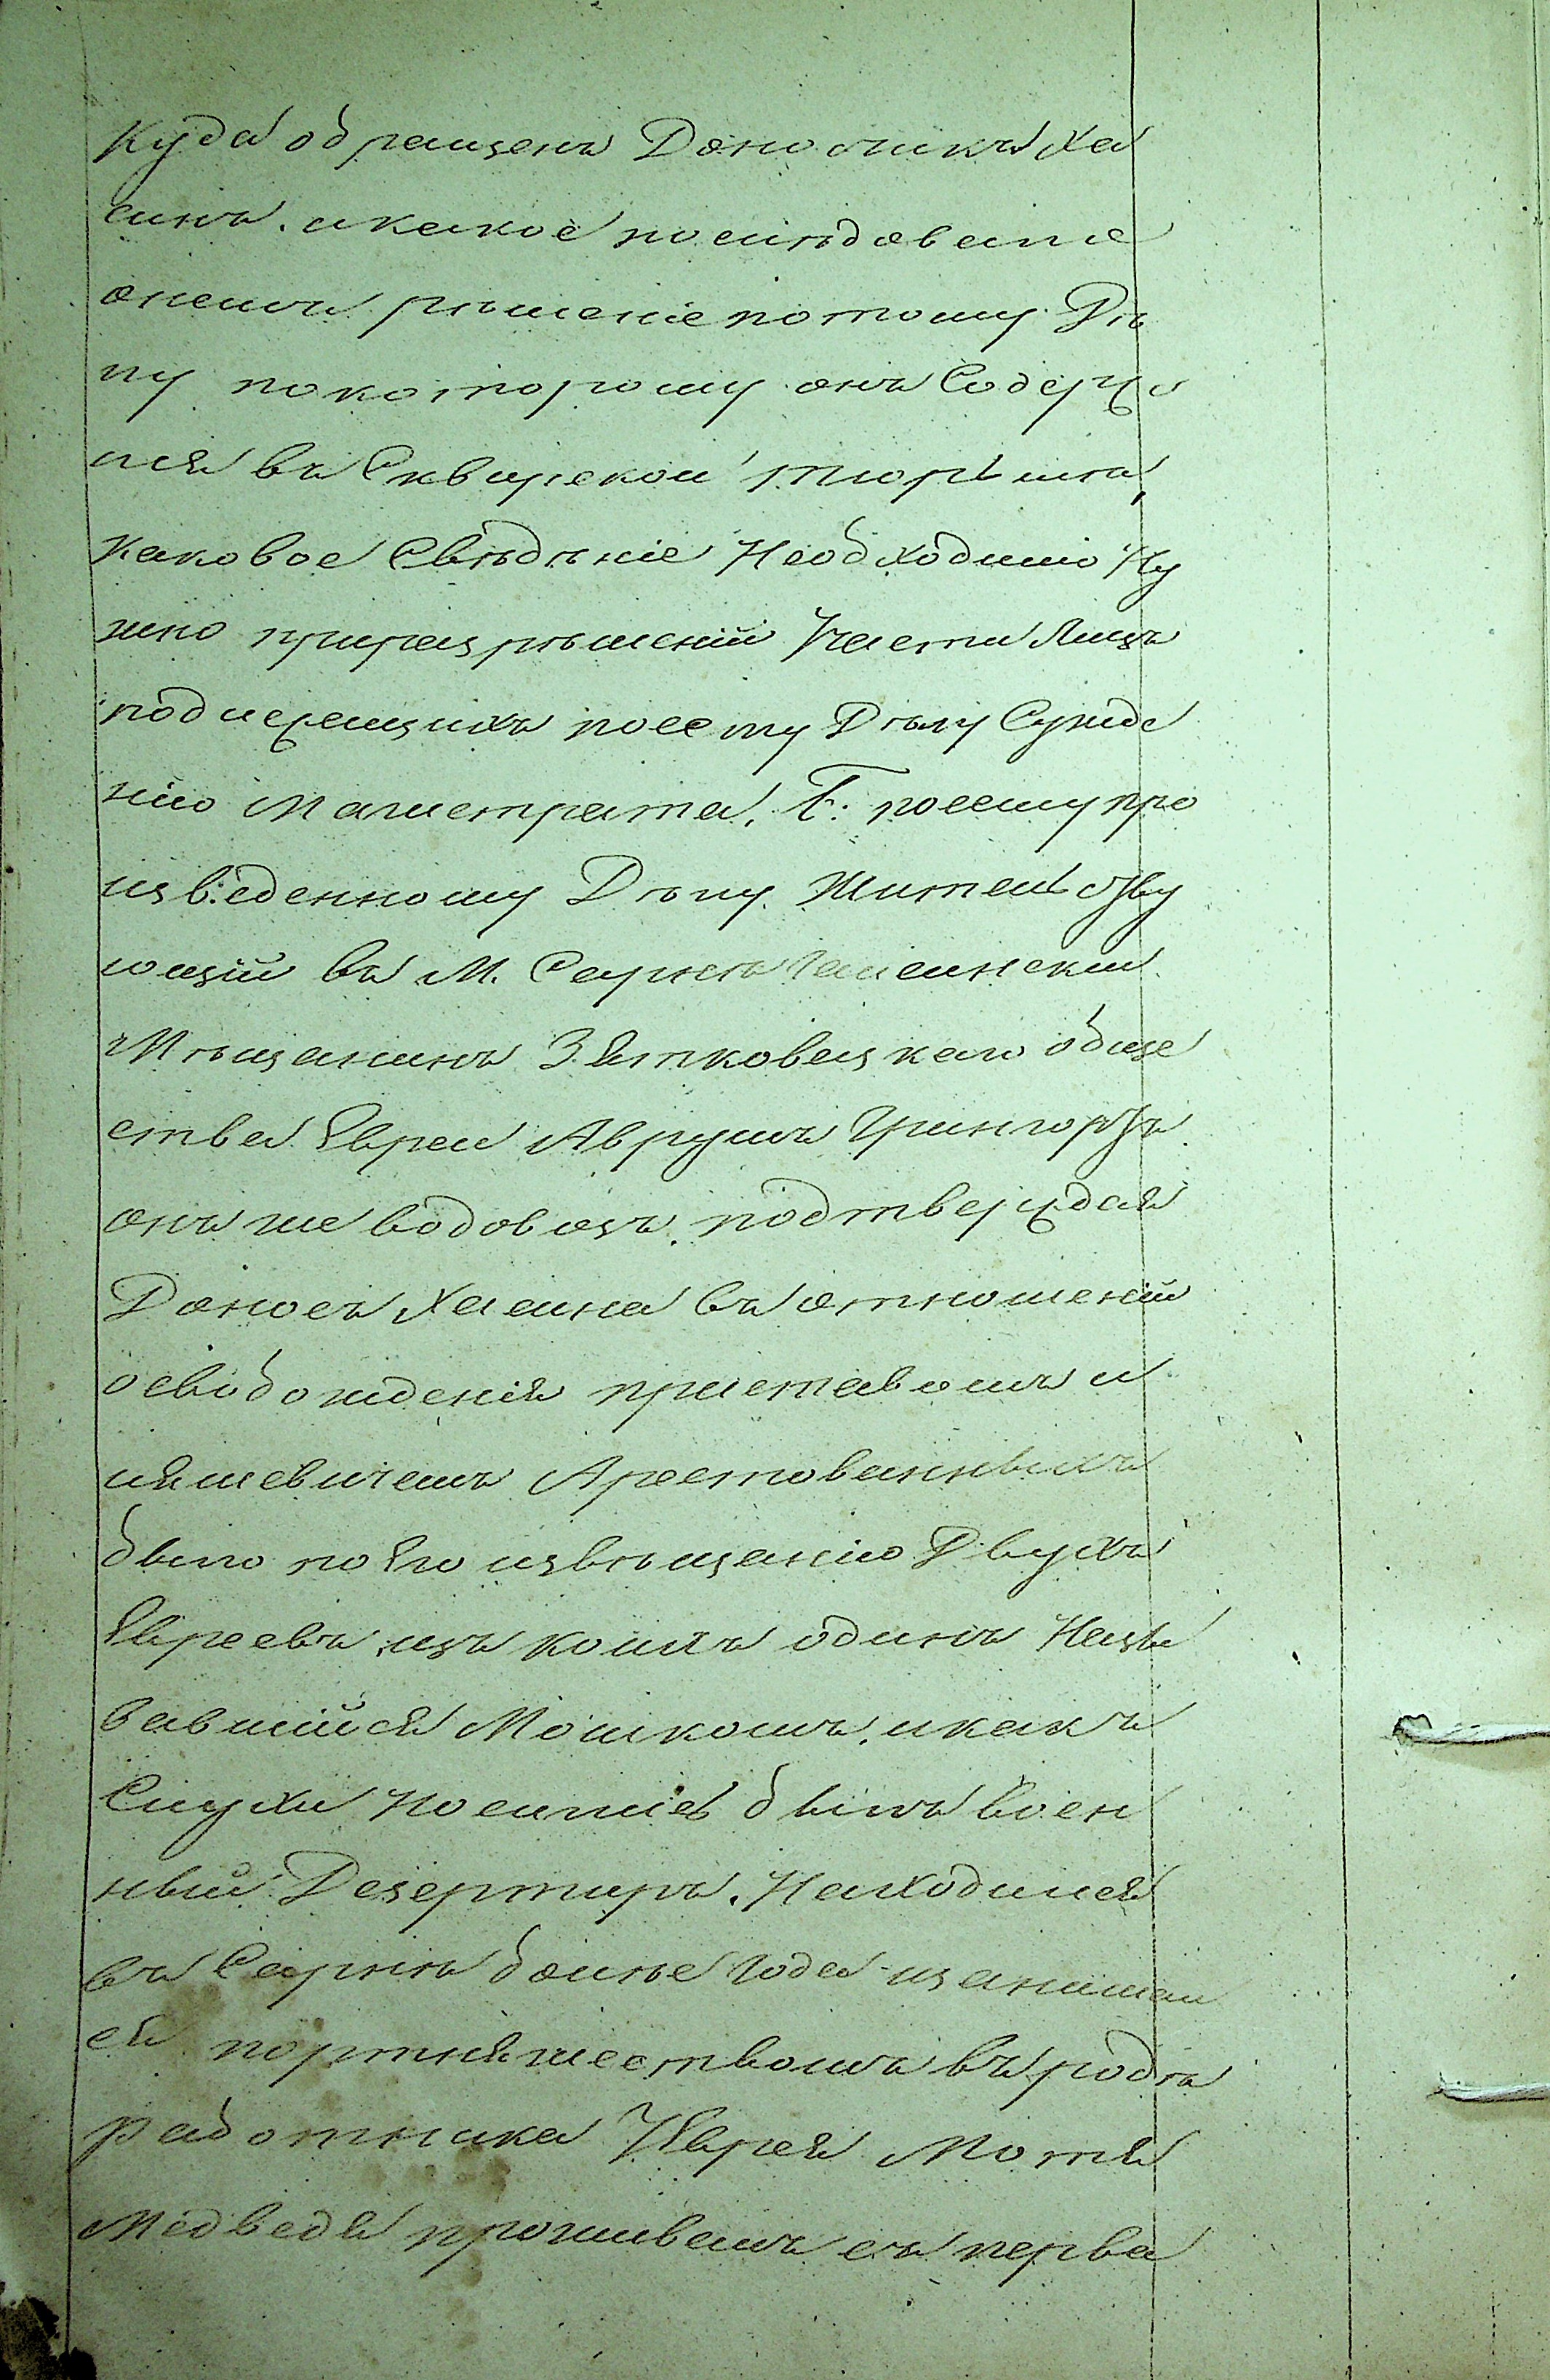 Куда обращенъ Доносчикъ Ха
симъ. и какое последовало
онемъ рѣшеніе потому Дѣ
лу покоторому онъ Содержа
лся въ Сквирской тюрьмѣ,
каковое Свѣдѣніе Необходимо Ну
жно приразрѣшеніи Участи Лицъ
подлежащихъ посему Дѣлу Сужде
нію Магистрата, Г. посему про
изведенному Дѣлу. Жительству
ющій въ М. Сарнѣ Гайсинскій
Мѣщанинъ Зятковецкаго обще
ства Еврей Аврумъ
онъ же водовозъ. подтверждая
Доносъ Хасина въ отношеніи
освобожденія приставомъ и
ляшевичемъ Арестованныхъ
было по Его извѣщенію Двухъ
Евреевъ, изъ коихъ одинъ Назы
вавшійся Мошкомъ, и какъ
Слухи Носились былъ Воен
ный Дезертиръ. Находился
въ Сарнѣ болѣе Года изанимал
ся портняжествомъ въ родѣ
работника У Еврея Мотя
Медведя проживалъ съ перва